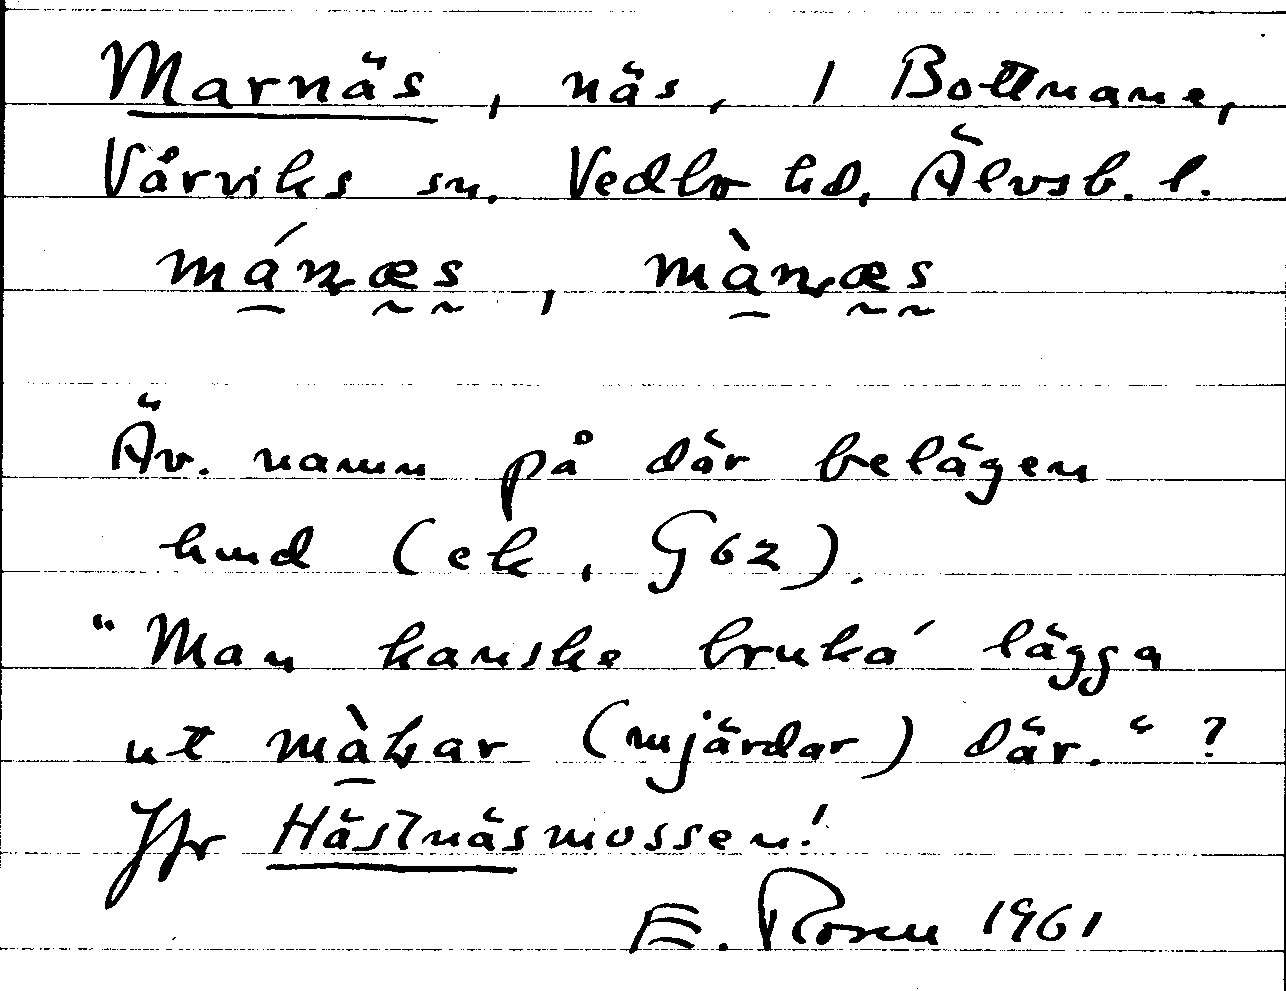 Marnäs, näs, i Bottnane,
Vårviks sn. Vedbo hd, Älvsb. l.
mánæs, mànæs
Äv. namn på där belägen
hmd (ek, G62).
"Man kanske bruka' lägga
ut màr (mjärdar) där." ?
Jfr Hästnäsmossen!
E. Rosen 1961